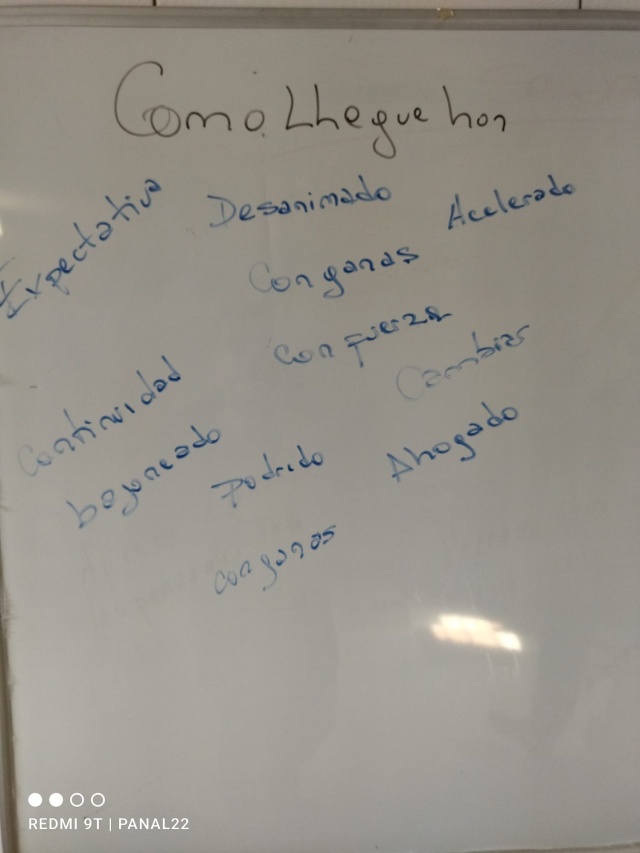 Como Lhegue hoy
Expectativa
Desanimado
Acelerado
Con ganas
Con fuerza
Cambiar
Continuidad
bajoneado
podrido
Ahogado
con ganas
REDMI 9T | PANAL22